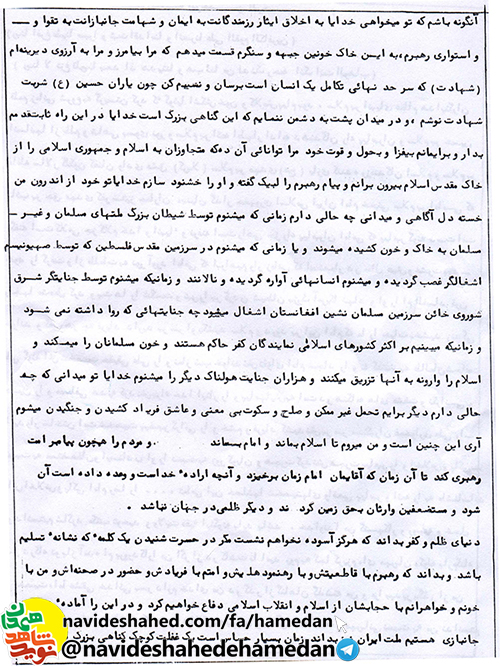 آنگونه باشم که تو میخواهی خدایا به اخلاق ایثار رزمندگانت به ایمان و شهامت جانبازانت به تقوا و ...
و استواری رهبرم، به ایسن خاک خونین جبهه و سنگرم قسمت میدهم که مرا بیامرز و مرا به آرزوی دیرینه‌ام
(شهادت) که سر حد نهائی تکامل یک انسان است برسان و نصیبم کن چون یاران حسین (ع) شربت
شهادت نوشم، و در میدان پشت به دشمن ننمایم که این گناهی بزرگ است خدایا در این راه ثابت قدمم
بدار و بر ایمانم بیفزا و بحول و قوت خود مرا توانائی آن ده که متجاوزان به اسلام و جمهوری اسلامی را از
خاک مقدس اسلام بیرون برانم و پیام رهبرم را لبیک گفته و او را خشنود سازم خدایا تو خود از اندرون من
خسته دل آگاهی و میدانی چه حالی دارم زمانی که میشنوم توسط شیطان بزرگ ملتهای مسلمان و غیر
مسلمان به خاک و خون کشیده میشوند و یا زمانی که میشنوم در سرزمین مقدس فلسطین که توسط صهیونیسم
اشغالگر غصب گردیده و میشنوم انسانهائی آواره گردیده و نالانند و زمانیکه میشنوم توسط جنایتگر شرق
شوروی خائن سرزمین مسلمان نشین افغانستان اشغال میشود چه جنایتهائی که روا داشته نمی شود
و زمانیکه میبینیم بر اکثر کشورهای اسلامی نمایندگان کفر حاکم هستند و خون مسلمانان را میمکند و
اسلام را وارونه به آنها تزریق میکنند و هزاران جنایت هولناک دیگر را میشنوم خدایا تو میدانی که چه
حالی دارم دیگر برایم تحمل غیر ممکن و صلح و سکوت بی معنی و عاشق فریاد کشیدن و جنگیدن میشوم
آری این چنین است و من میروم تا اسلام بماند و امام بماند و مردم را همچون پیامبر امت
رهبری کند تا آن زمان که آقایمان امام زمان برخیزد و آنچه اراده خداست و وعده داده است آن
شود و مستضعفین وارثان بحق زمین گردند و دیگر ظلمی در جهان نباشد.
دنیای ظلم و کفر بداند که هرگز آسوده نخواهم نشست مگر در حسرت شنیدن یک کلمه که نشانه تسلیم
باشد و بداند که رهبرم با قاطعیتش و با رهنمودهایش و امتم با فریادش و حضور در صحنه‌اش و من با
خونم و خواهرانم با حجابشان از اسلام و انقلاب اسلامی دفاع خواهیم کرد و در این راه آماده
جانبازی هستیم ملت ایران بداند زمان بسیار حساس است یک غفلت کوچک گناهی بزرگ
navideshahed.com/fa/hamedan
@navideshahedehamedan
نوید شاهد
همدان